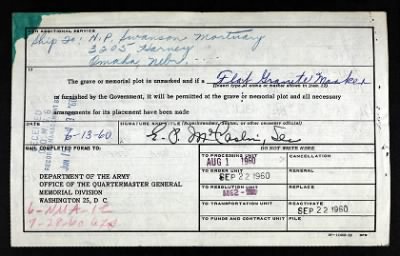 FOR ADDITIONAL SERVICE
Ship to: N.P. Swanson Mortuary
3205 Harney
Omaha Nebr.
The grave or memorial plot is unmarked and if a Flat Granite Marker
(Insert type of stone or marker shown in item 22)
is furnished by the Government, it will be permitted at the grave or memorial plot and all necessary
arrangements for its placement have been made
DATE
6-13-60
FORWARD COMPLETED FORMS TO:
DO NOT WRITE HERE
DEPARTMENT OF THE ARMY
OFFICE OF THE QUARTERMASTER GENERAL
MEMORIAL DIVISION
WASHINGTON 25, D C
TO PROCESSING UNIT
AUG 1 1960
CANCELLATION
TO ORDER UNIT
SEP 22 1960
REPLACE
TO TRANSPORTATION UNIT
REACTIVATE
SEP 22 1960
TO FUNDS AND CONTRACT UNIT
FILE